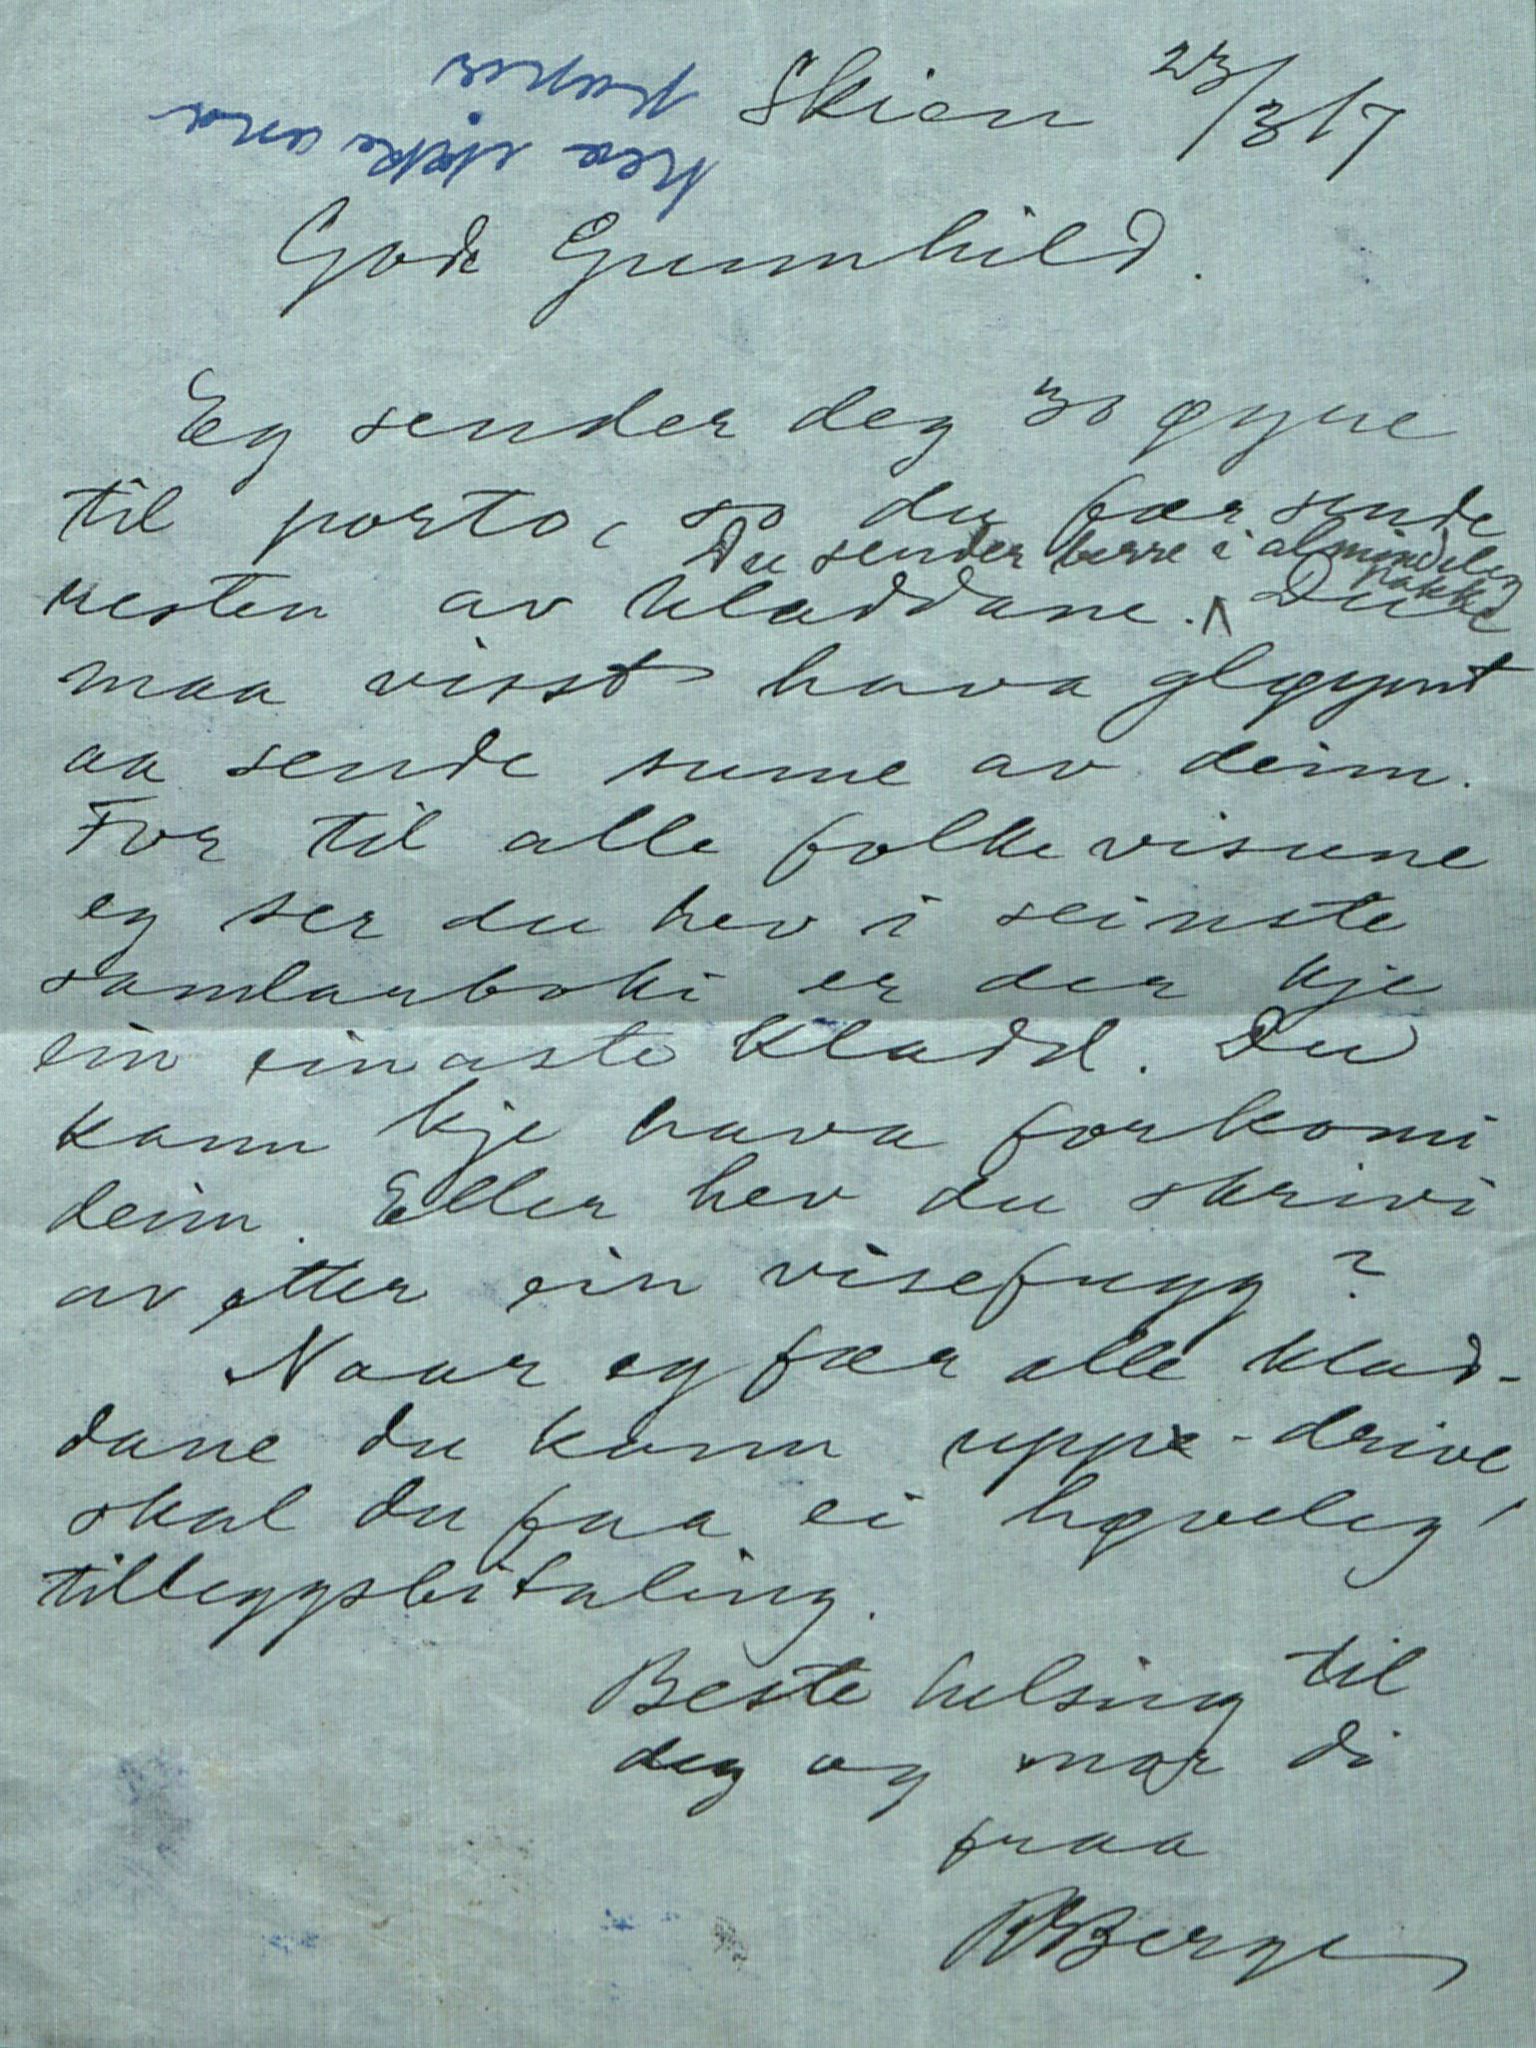 Skien 23/3 17
hea ikke ana
papir
Gode Gunnhild.
Eg sender deg 30 øyre
til porto, so du fær sende
resten av kladdane. Du sender berre i almindeleg pakke Du
maa visst hava gløymt
aa sende sume av deim.
For til alle folkevisune
eg ser du hev i seinste
samlarboki er der kje
ein einaste kladd. Du
kann kje hava forkomi
deim. Eller hev du skrivi
av etter ein visefugg?
Naar eg fær alle klad-
dane du kann uppe-drive,
skal du faa ei høveleg
tilleggsbitaling.
Beste helsing til
deg og mor di
fraa
RBerge